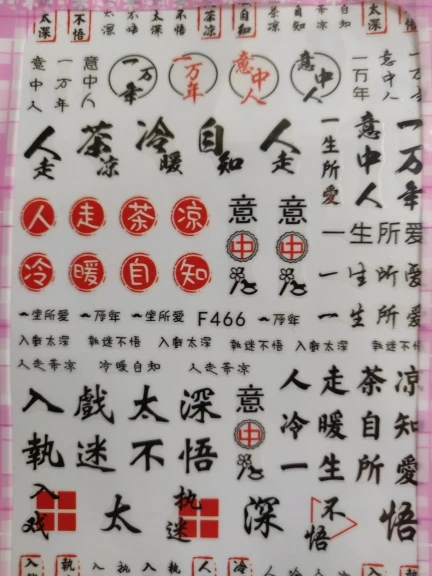 太深 不悟 太深 不悟 太深 不悟 茶凉 自知 茶凉 自知 茶凉 自知 太深 不悟
意中人 一万年 意中人 一万年 一万年 意中人 意中人 一万年 意中人
人走 茶凉 冷暖 自知 人走 一生所愛 意中人 一万年
人走茶凉 意中人 意中人
一生所爱
冷暖自知
一生所爱
一生所爱
一生所爱 一万年 一生所爱 F466 一万年
入戲太深 執迷不悟 入戲太深 執迷不悟
人走茶凉 冷暖自知 人走茶凉
入戲太深 意中人 人走茶凉
執迷不悟 冷暖自知
一生所愛
入戏 太 执迷 深 不悟 悟